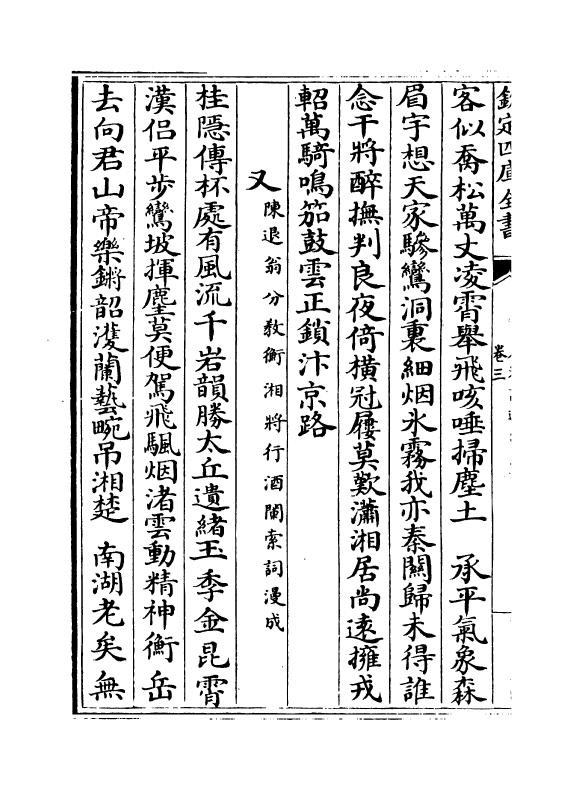 欽定四庫全書
卷三
客似喬松萬丈凌霄舉飛咳唾掃塵土　承平氣象森
眉宇想天家驂鸞洞裏細烟氷霧我亦秦關歸未得誰
念干將醉撫判良夜倚橫冠屨莫歎瀟湘居尚逺擁戎
軺萬騎鳴笳鼓雲正鎖汴京路
又陳退翁分敎衡湘將行酒闌索詞漫成
桂隱傳杯處有風流千岩韻勝太丘遺緒玉季金昆霄
漢侣平步鸞坡揮麈莫便駕飛颿烟渚雲動精神衡岳
去向君山帝樂鏘韶濩蘭藝畹吊湘楚　南湖老矣無